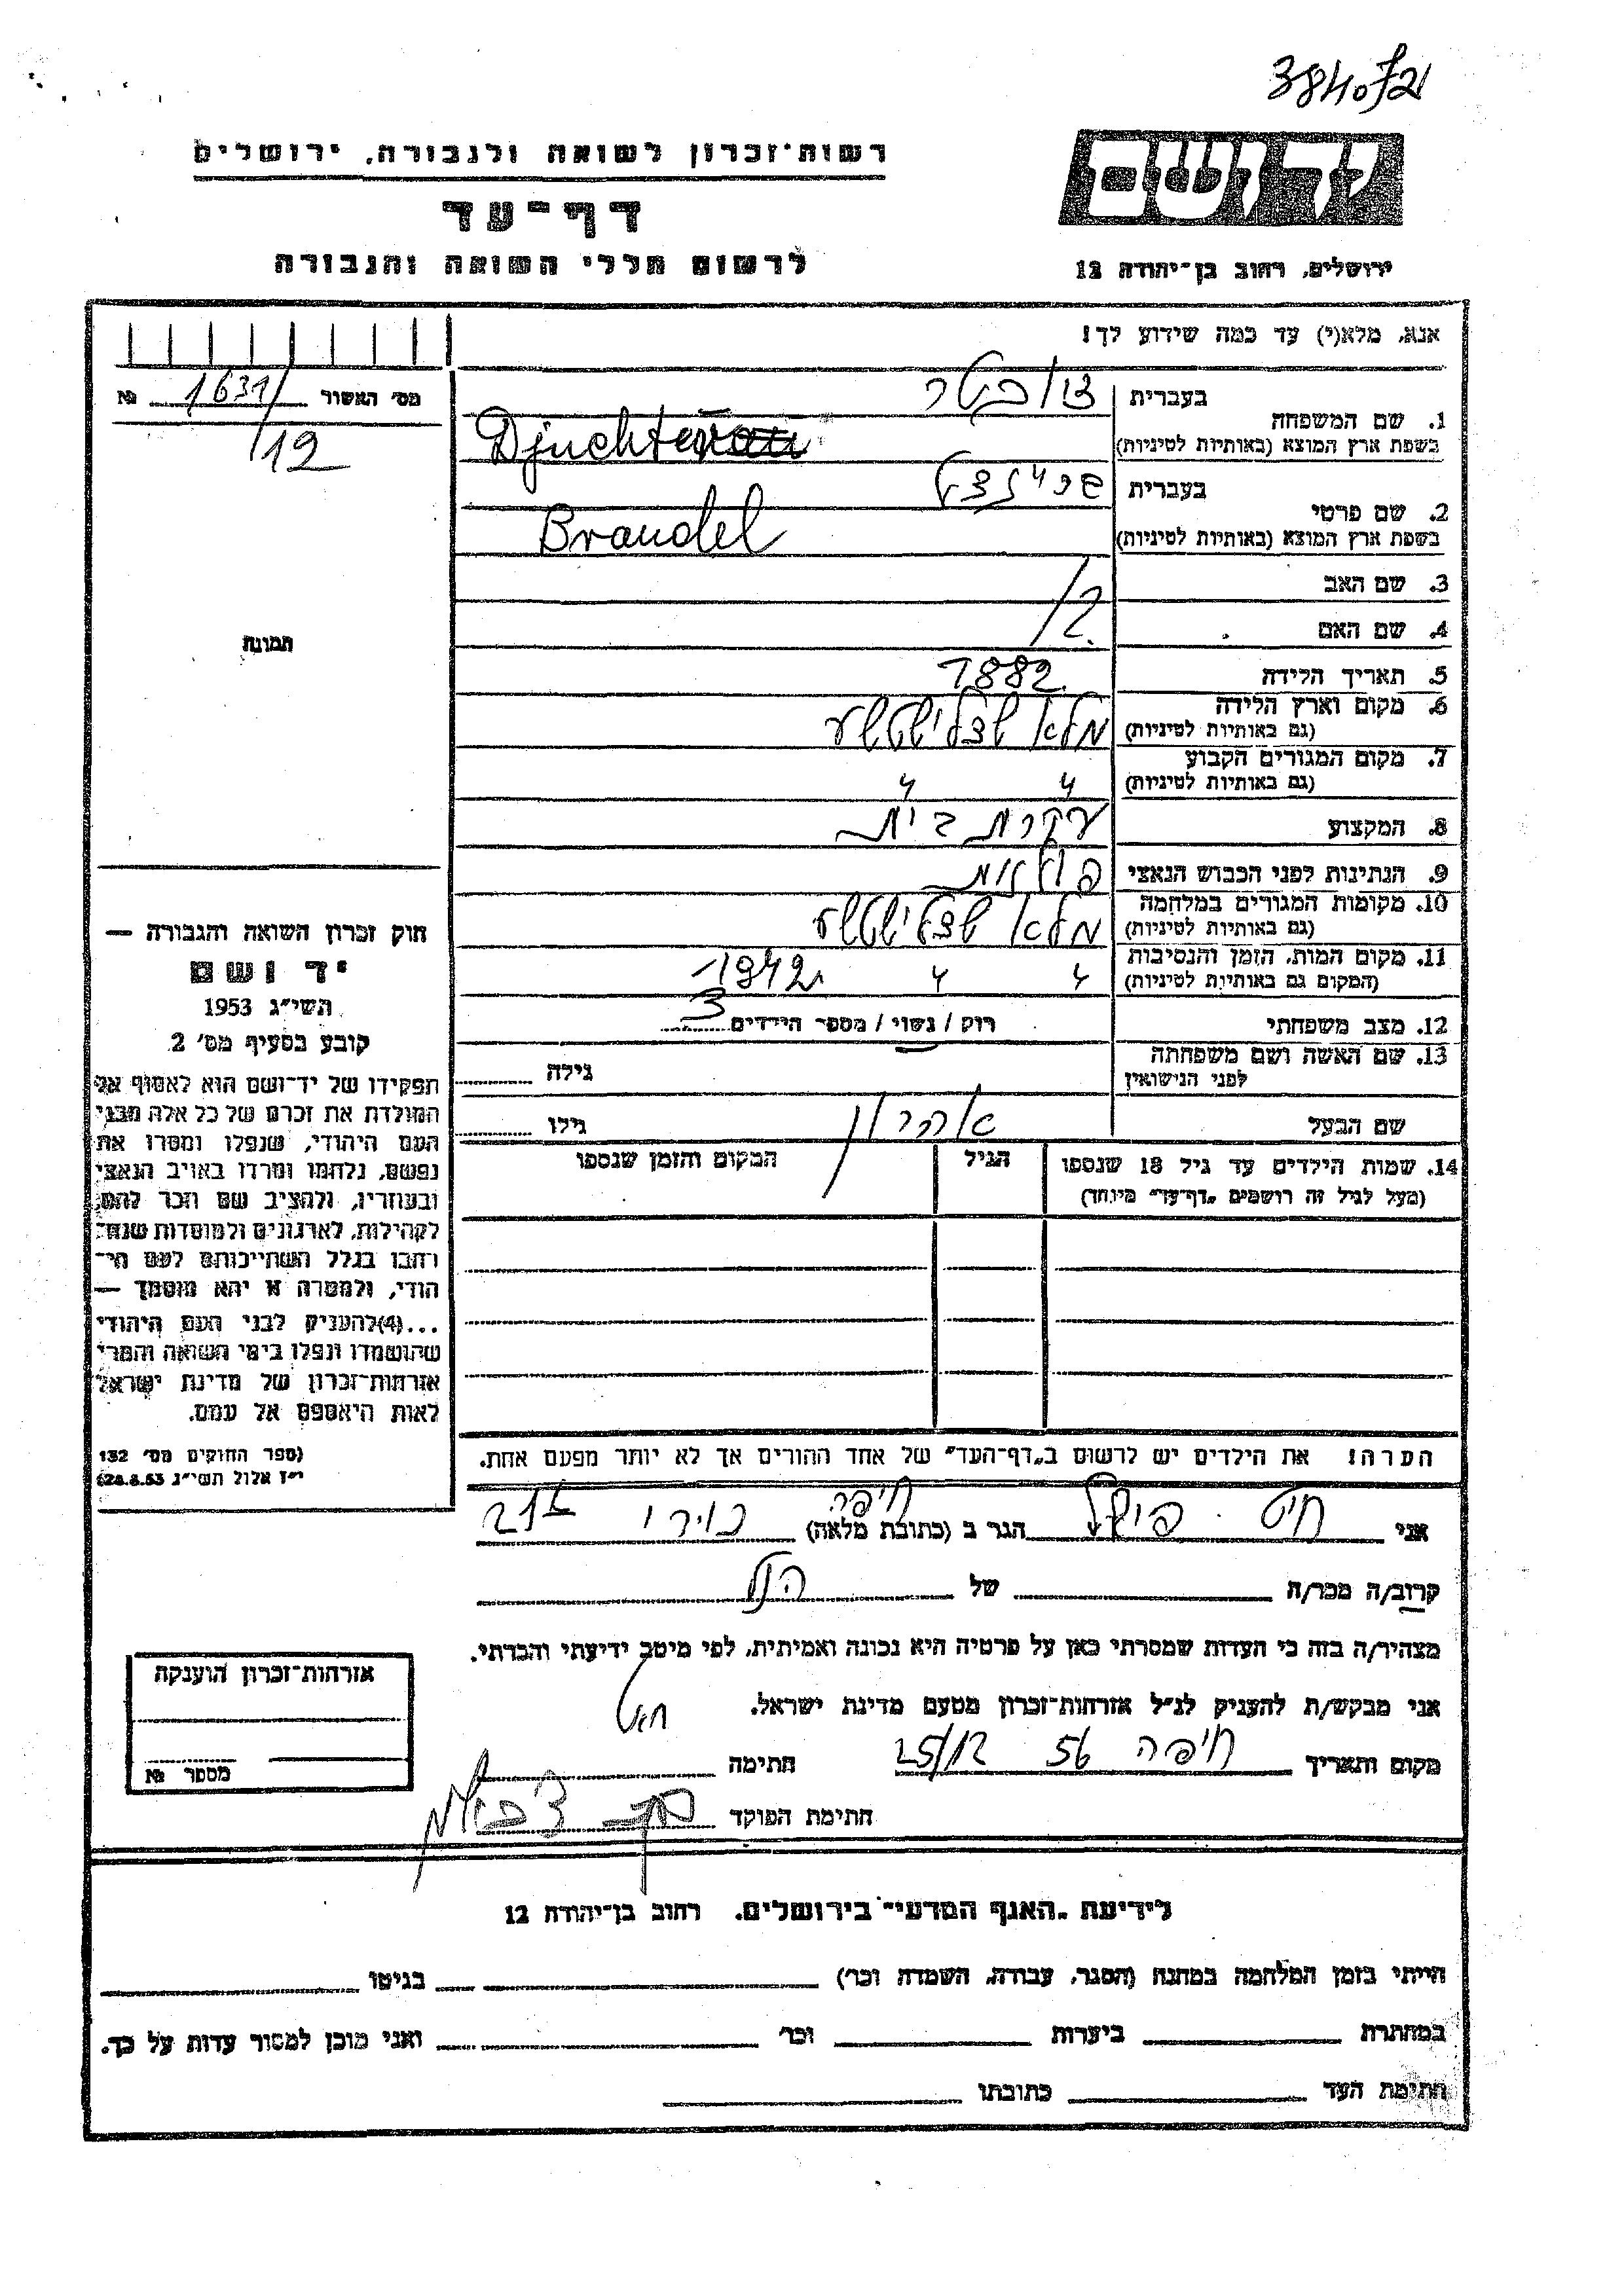 38407/21
רשות־זכרון לשואה ולגבורה, ירושלים
דף־עד
לרשום חללי השואה והגבורה
יד ושם
ירושלים, רחוב בן־יהודה 12
אנא, מלא(י) עד כמה שידוע לך!
מס׳ האשור 1631/ №
12
תמונה
1. שם המשפחה
בעברית
בשפת ארץ המוצא (באותיות לטיניות) Djuchte
2. שם פרטי
בעברית
בשפת ארץ המוצא (באותיות לטיניות) Brandel
3. שם האב
4. שם האם ?
5. תאריך הלידה 1882
6. מקום וארץ הלידה
(גם באותיות לטיניות)
7. מקום המגורים הקבוע
(גם באותיות לטיניות) " "
8. המקצוע עקרת בית
9. הנתינות לפני הכבוש הנאצי פולנית
10. מקומות המגורים במלחמה
(גם באותיות לטיניות)
11. מקום המות, הזמן והנסיבות
(המקום גם באותיות לטיניות) " " 1942
12. מצב משפחתי רוק / נשוי / מספר הילדים 3
13. שם האשה ושם משפחתה
לפני הנישואין גילה
שם הבעל אהרון גילו
14. שמות הילדים עד גיל 18 שנספו
(מעל לגיל זה רושמים „דף־עד״ מיוחד)
הגיל
המקום והזמן שנספו
חוק זכרון השואה והגבורה —
יד ושם
השי״ג 1953
קובע בסעיף מס׳ 2
תפקידו של יד־ושם הוא לאסוף אל
המולדת את זכרם של כל אלה מבני
העם היהודי, שנפלו ומסרו את
נפשם, נלחמו ומרדו באויב הנאצי
ובעוזריו, ולהציב שם וזכר להם,
לקהילות, לארגונים ולמוסדות שנח־
רבו בגלל השתייכותם לעם הי־
הודי, ולמטרה זו יהא מוסמך —
...(4)להעניק לבני העם היהודי
שהושמדו ונפלו בימי השואה והמרי
אזרחות־זכרון של מדינת ישראל
לאות היאספם אל עמם.
(ספר החוקים מס׳ 132
י״ז אלול תשי״ג 28.8.53)
הערה! את הילדים יש לרשום ב„דף־העד״ של אחד ההורים אך לא יותר מפעם אחת.
אני הגר ב (כתובת מלאה) חיפה
קרוב/ה מכר/ה של
מצהיר/ה בזה כי העדות שמסרתי כאן על פרטיה היא נכונה ואמיתית, לפי מיטב ידיעתי והכרתי.
אני מבקש/ת להעניק לנ״ל אזרחות־זכרון מטעם מדינת ישראל.
מקום ותאריך חיפה 56 25/12 חתימה
חתימת הפוקד
אזרחות־זכרון הוענקה
מספר №
לידיעת „האגף המדעי״ בירושלים. רחוב בן־יהודה 12
הייתי בזמן המלחמה במחנה (הסגר, עבודה, השמדה וכר׳) בגיטו
במחתרת ביערות וכר׳ ואני מוכן למסור עדות על כך.
חתימת העד כתובתו